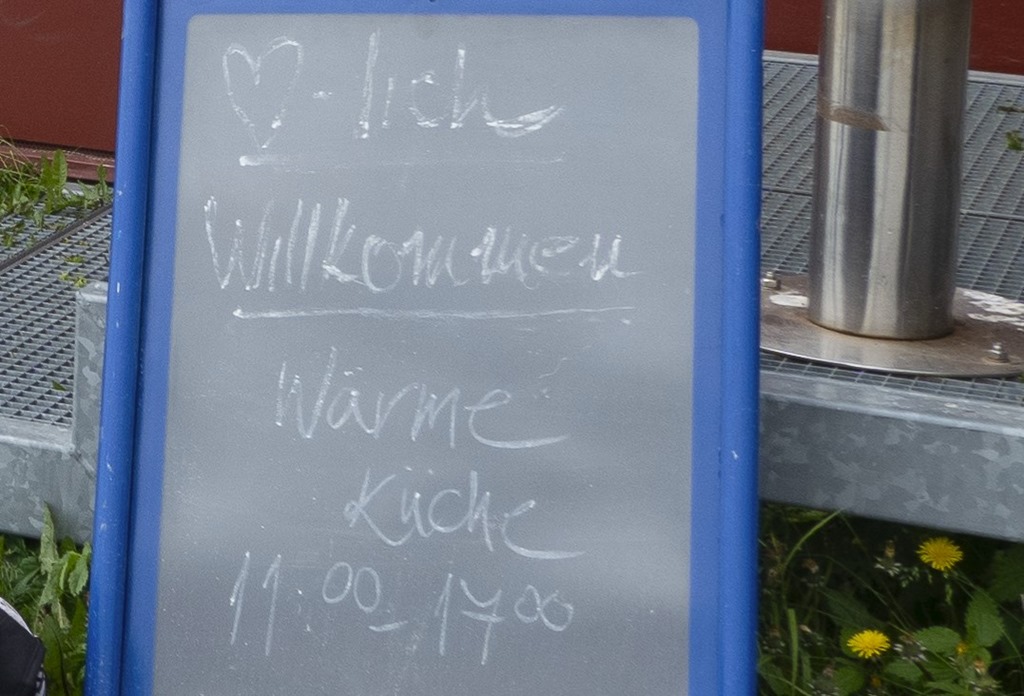 ♡-lich
Willkommen
Wärme
Küche
11 00 - 17 00